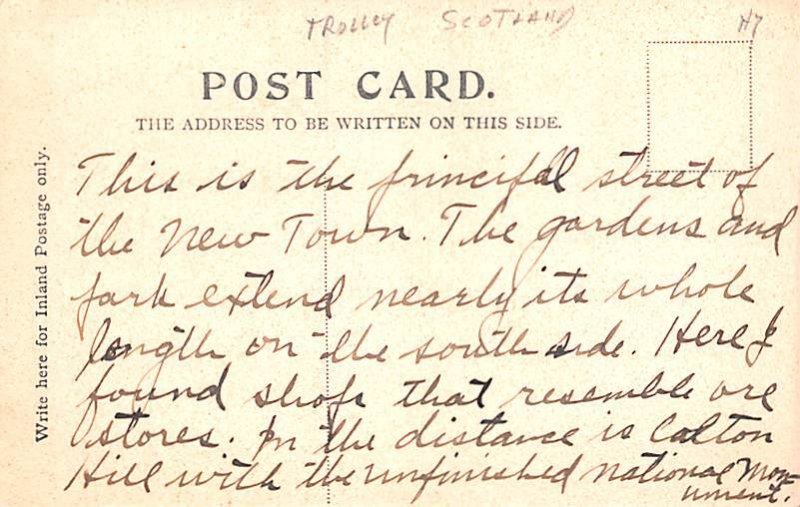 TROLLEY SCOTLAND H7
POST CARD.
THE ADDRESS TO BE WRITTEN ON THIS SIDE.
Write here for Inland Postage only.
This is the principal street of
the New Town. The gardens and
park extend nearly its whole
length on the south side. Here I
found shops that resemble our
stores. In the distance is Calton
Hill with the unfinished national Mon-
ument.